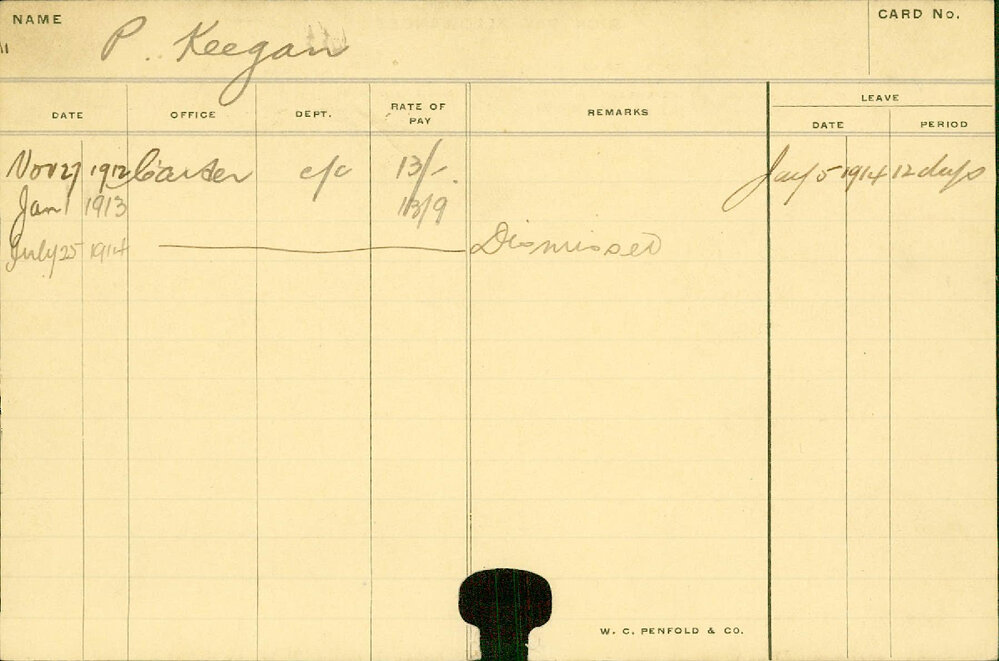 NAME P. Keegan CARD No.
LEAVE
DATE OFFICE DEPT. RATE OF PAY REMARKS DATE PERIOD
Nov 27 1912 Carter c/c 13/-. Jay 5 1914 12 days
Jan 1 1913 13/9
July 25 1914 Dismissed
W. C. PENFOLD & CO.